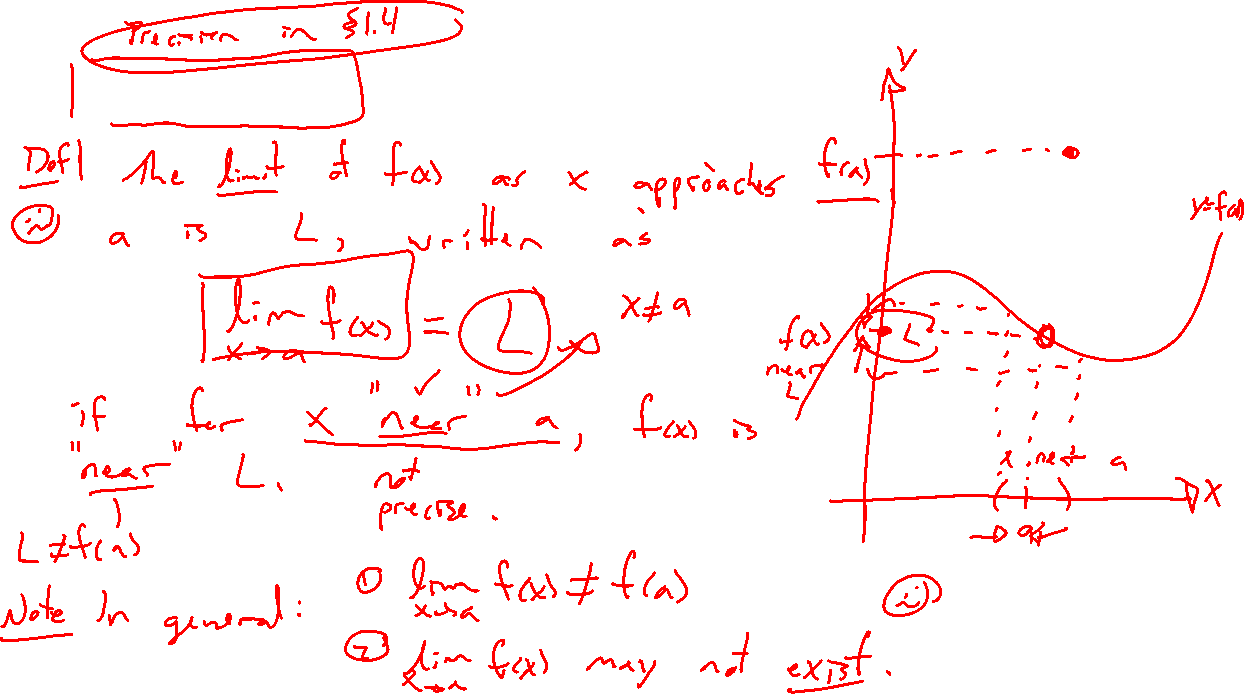 Precision in §1.4
Def| The limit of f(x) as x approaches
a is L, written as
lim f(x) = L
x→a
x≠a
if for x "near" a, f(x) is
"near" L.
not
precise.
L≠f(a)
Note In general: ① lim f(x) ≠ f(a)
x→a
② lim f(x) may not exist.
x→a
y
f(a)
y=f(x)
f(x)
near
L
L
x near a
a
x